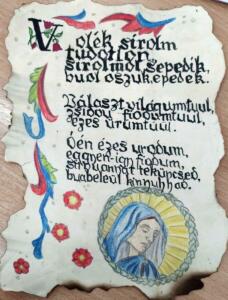 Volék sirolm
tudotlon
sirolmol sepedik.
buol oszuk, epedek.
Választ világumtuul,
zsidou fiodumtuul,
ézes ürümtuul.
Óén ézes urodum,
eggyen-igy fiodum,
sirou anyát teküncsed,
buabeleul kinyuhhad.